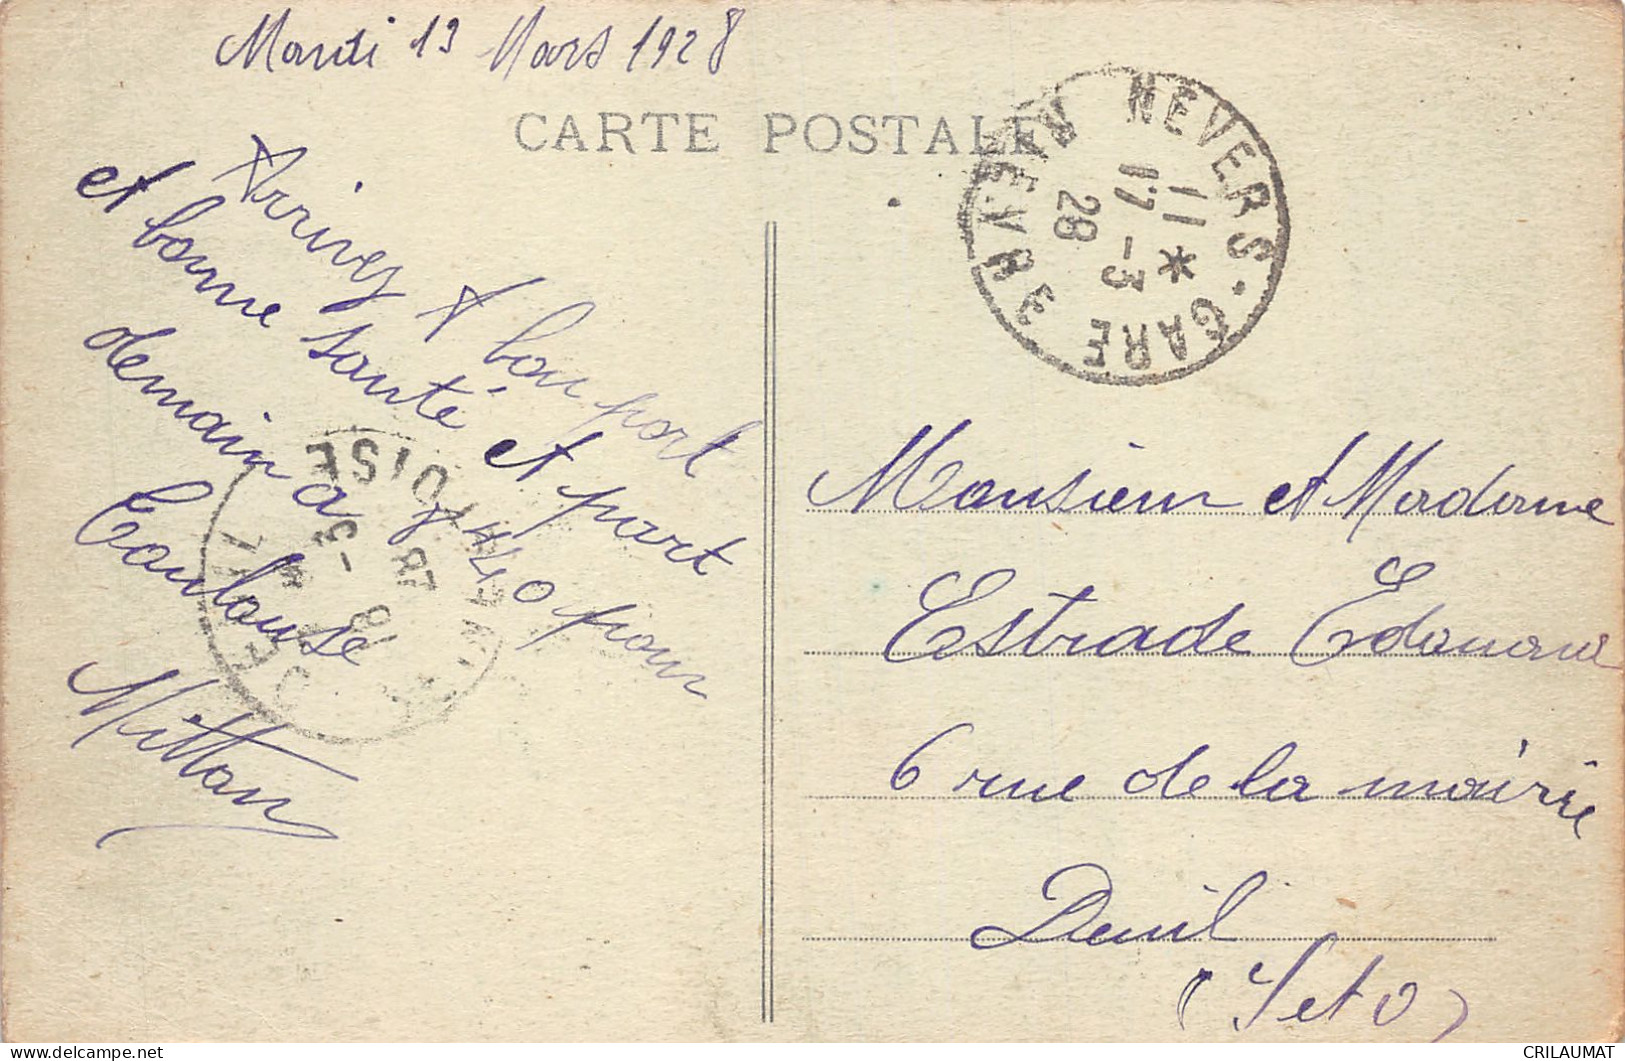 Mardi 13 Mars 1928
CARTE POSTALE
NEVERS - GARE
NIEVRE
11 *
17 - 3
28
Arrivez A bon port
et bonne santé et part
demain a 7 h 40 pour
Toulouse
Mittan
SEINE-ET-OISE
DEUIL
-3
28
Monsieur et Madame
Estrade Edouard
6 rue de la mairie
Deuil
(S et O)
CRILAUMAT